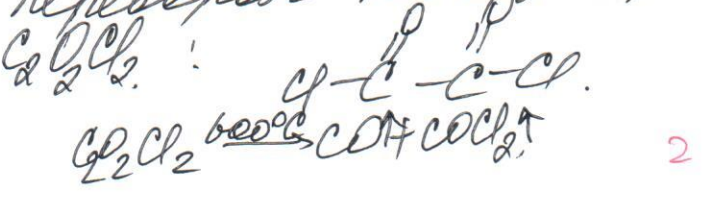 C2O2Cl2. :
O O
Cl-C-C-Cl.
C2O2Cl2 600°C → CO↑+COCl2↑.
2